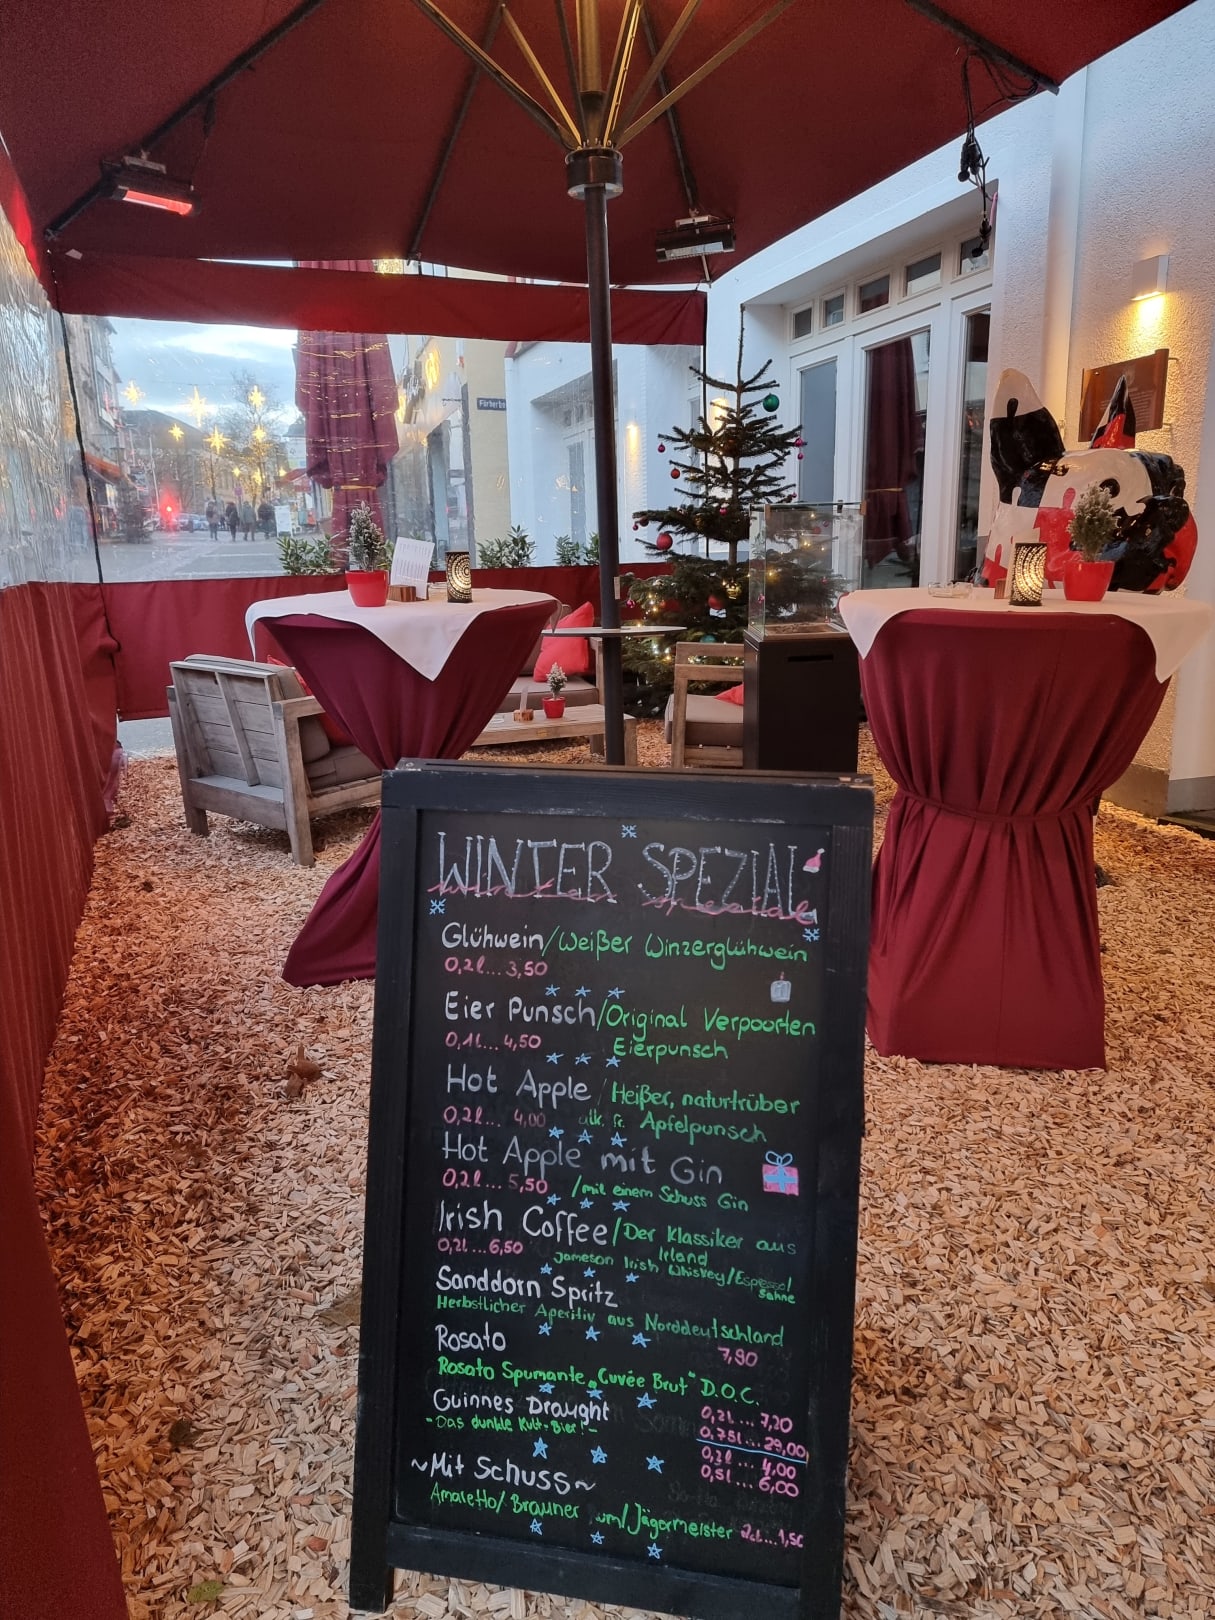 WINTER SPEZIAL
winter spezial
Glühwein/Weißer Winzerglühwein
0,2l...3,50
Eier Punsch/Original Verpoorten
0,1l...4,50 Eierpunsch
Hot Apple/Heißer, naturtrüber
0,2l... 4,00 alk. fr. Apfelpunsch
Hot Apple mit Gin
0,2l... 5,50 /mit einem Schuss Gin
Irish Coffee/Der Klassiker aus
Irland
0,2l...6,50 Jameson Irish Whiskey/Espresso/
Sahne
Sanddorn Spritz
Herbstlicher Aperitiv aus Norddeutschland
7,90
Rosato
Rosato Spumante „Cuvée Brut" D.O.C.
0,2l... 7,20
0,75l... 29,00
Guinnes Draught
-Das dunkle Kult-Bier!-
0,3l ... 4,00
0,5l ... 6,00
~Mit Schuss~
Amaretto/Brauner um/Jägermeister 2cl...1,50